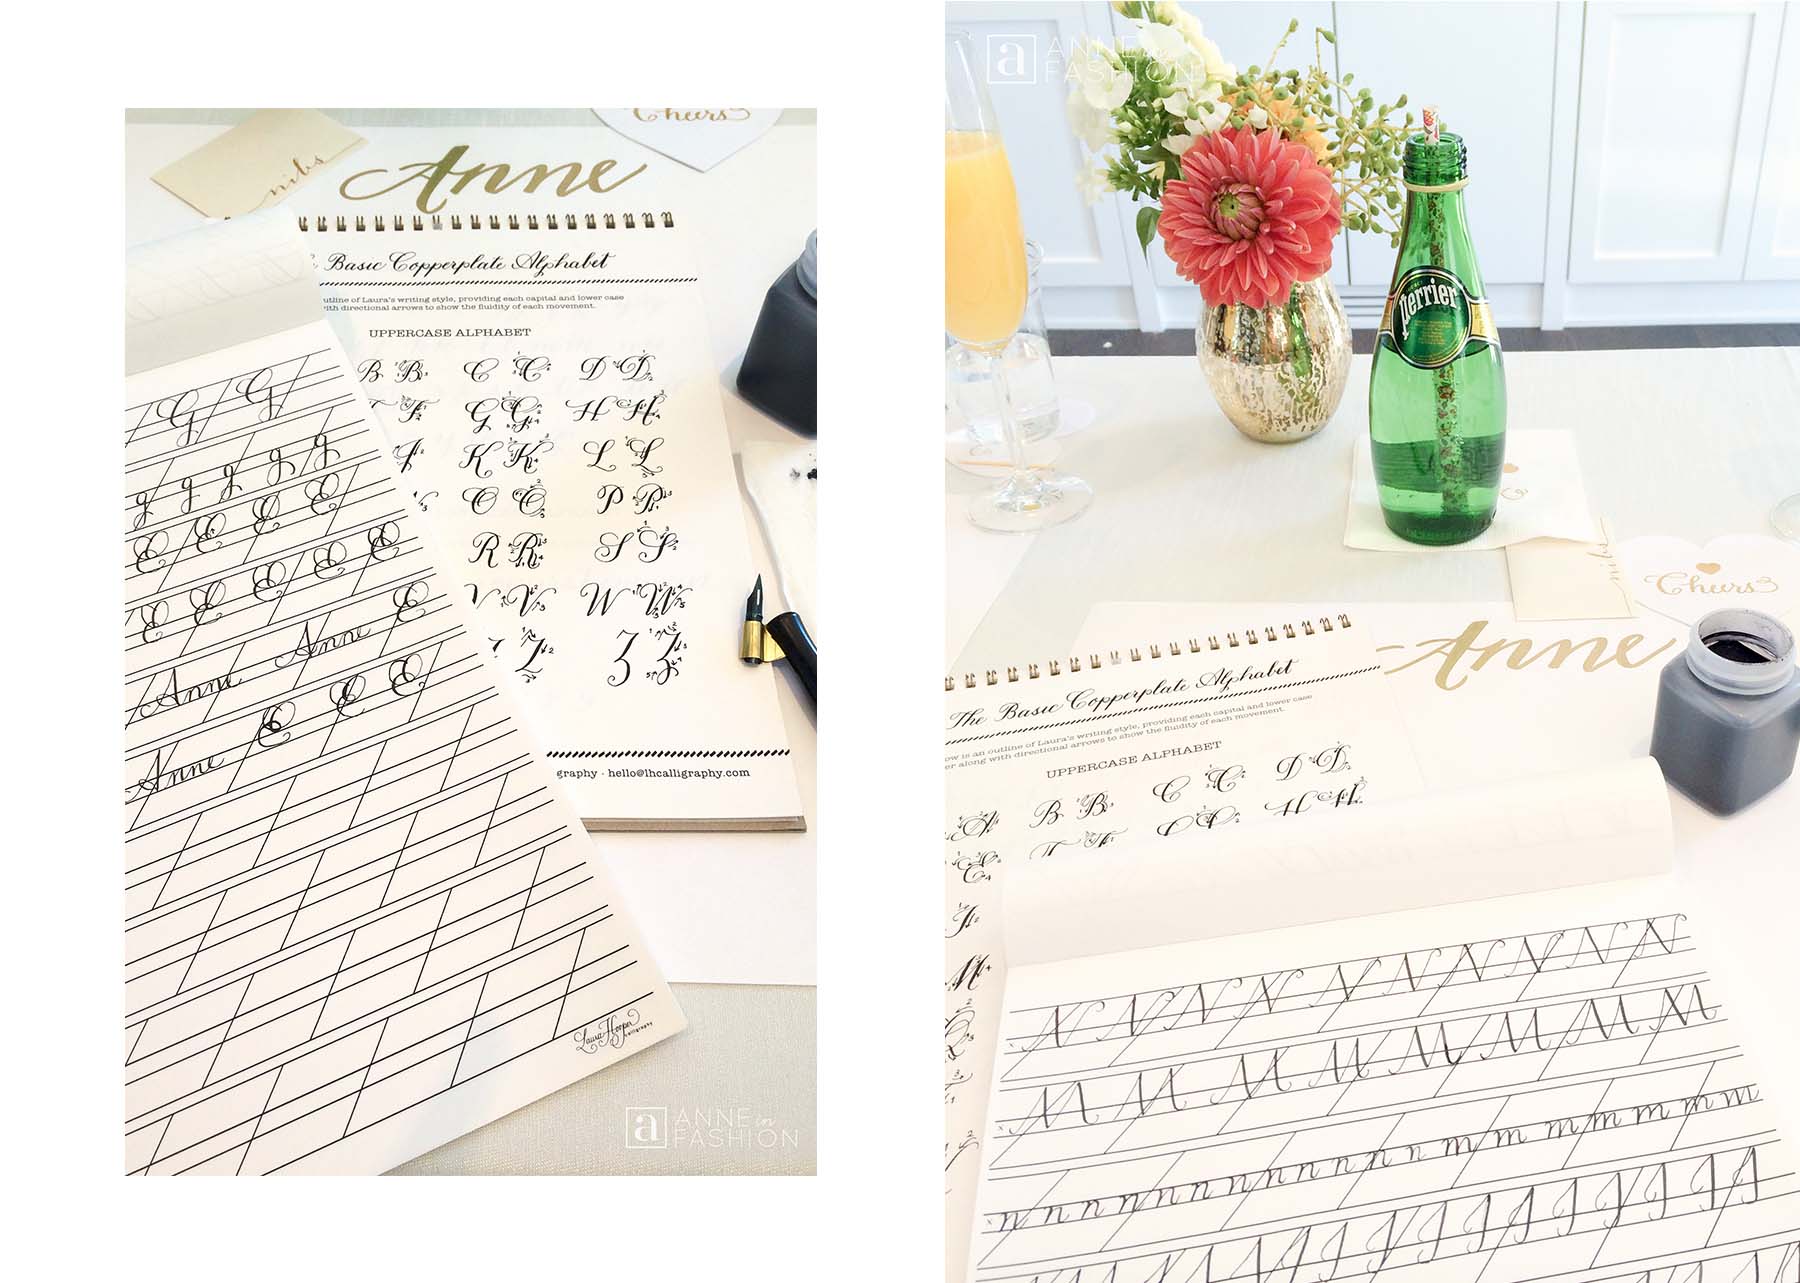 Cheers
nibs
Anne
Basic Copperplate Alphabet
outline of Laura's writing style, providing each capital and lower case
with directional arrows to show the fluidity of each movement.
UPPERCASE ALPHABET
B B C C D D
F G G H H
K K L L
O O P P
R R S S
V V W W
Z Z 3 Z
graphy · hello@lhcalligraphy.com
G G
g g g g g
E E E E
E E E E E
Anne Anne E
Anne E E E
Laura Hooper
Calligraphy
a ANNE in
FASHION
a ANNE in
FASHION
Perrier
nibs
Cheers
Anne
The Basic Copperplate Alphabet
is an outline of Laura's writing style, providing each capital and lower case
along with directional arrows to show the fluidity of each movement.
UPPERCASE ALPHABET
B B C C D D
H H
N N N N N N N N N
M M M M M M M M
n n n n n n n n n n m m m m m m